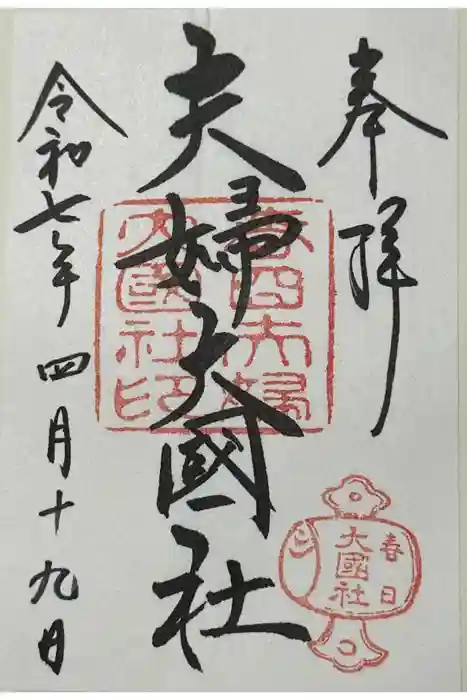 奉拝
夫婦大國社
春日夫婦
大國社印
令和七年四月十九日
春日
大國社